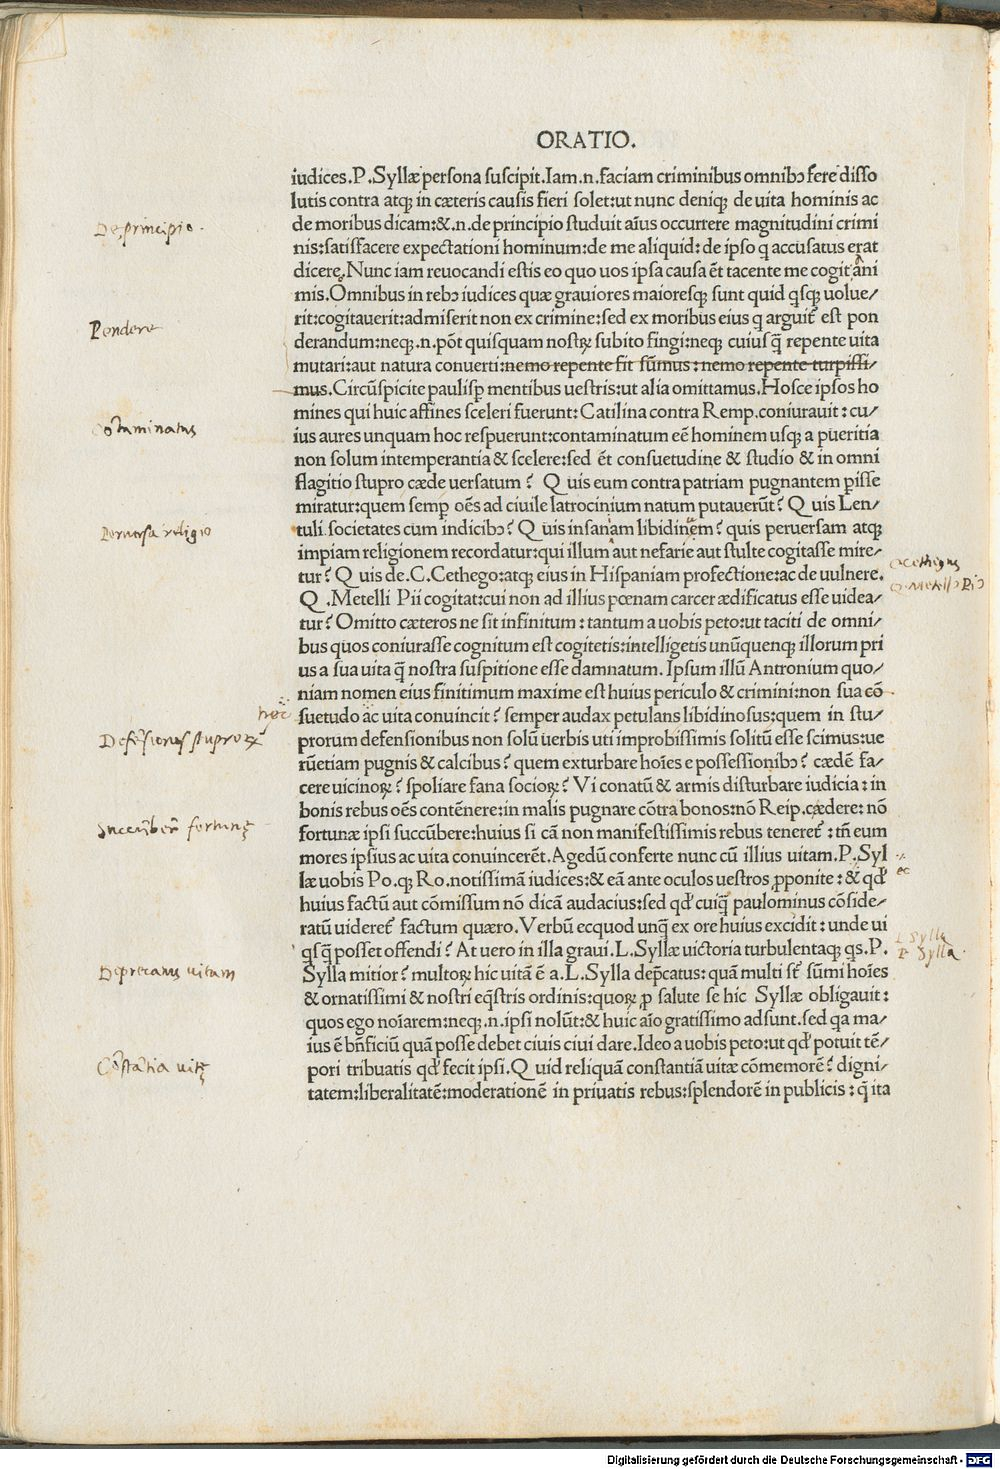 ORATIO.
iudices.P.Syllæ persona suscipit.Iam.n.faciam criminibus omnibꝫ fere disso
lutis contra atqꝫ in cæteris causis fieri solet:ut nunc deniqꝫ de uita hominis ac
de moribus dicam:&.n.de principio studuit aĩus occurrere magnitudini crimi
nis:satisfacere expectationi hominum:de me aliquid:de ipso q accusatus erat
dicere.Nunc iam reuocandi estis eo quo uos ipsa causa ẽt tacente me cogit ãni
mis.Omnibus in rebꝫ iudices quæ grauiores maioresqꝫ sunt quid qsqꝫ uolue/
rit:cogitauerit:admiserit non ex crimine:sed ex moribus eius q arguit᷑ est pon
derandum:neqꝫ.n.põt quisquam nostrꝝ subito fingi:neqꝫ cuiusq̃ repente uita
mutari:aut natura conuerti:nemo repente fit sũmus:nemo repente turpissi/
mus.Circũspicite paulisꝑ mentibus uestris:ut alia omittamus.Hosce ipsos ho
mines qui huic affines sceleri fuerunt:Catilina contra Remp.coniurauit:cu/
ius aures unquam hoc respuerunt:contaminatum eẽ hominem usqꝫ a pueritia
non solum intemperantia & scelere:sed ẽt consuetudine & studio & in omni
flagitio stupro cæde uersatum? Quis eum contra patriam pugnantem ꝑisse
miratur:quem semꝑ oẽs ad ciuile latrocinium natum putauerũt? Quis Len/
tuli societates cum indicibꝫ? Quis insaniam libidinem? quis peruersam atqꝫ
impiam religionem recordatur:qui illum aut nefarie aut stulte cogitasse mire/
tur? Quis de.C.Cethego:atqꝫ eius in Hispaniam profectione:ac de uulnere.
Q.Metelli Pii cogitat:cui non ad illius pœnam carcer ædificatus esse uidea/
tur? Omitto cæteros ne sit infinitum:tantum a uobis peto:ut taciti de omni/
bus quos coniurasse cognitum est cogitetis:intelligetis unũquenqꝫ illorum pri
us a sua uita q̃ nostra suspitione esse damnatum.Ipsum illũ Antronium quo/
niam nomen eius finitimum maxime est huius periculo & crimini:non sua cõ
suetudo ac uita conuincit? semper audax petulans libidinosus:quem in stu/
prorum defensionibus non solũ uerbis uti improbissimis solitũ esse scimus:ue
rũetiam pugnis & calcibus? quem exturbare hoĩes e possessionibꝫ? cædẽ fa/
cere uicinoꝝ? spoliare fana socioꝝ? Vi conatũ & armis disturbare iudicia:in
bonis rebus oẽs contẽnere:in malis pugnare cõtra bonos:nõ Reip.cædere:nõ
fortunæ ipsi succũbere:huius si cã non manifestissimis rebus teneret᷑:tñ eum
mores ipsius ac uita conuincerẽt.Agedũ conferte nunc cũ illius uitam.P.Syl
læ uobis Po.qꝫ Ro.notissimã iudices:& eã ante oculos uestros ꝓponite:& qđ
huius factũ aut cõmissum nõ dicã audacius:sed qđ cuiq̃ paulominus cõside/
ratũ uideret᷑ factum quæro.Verbũ ecquod unq̃ ex ore huius excidit:unde ui
qsq̃ posset offendi? At uero in illa graui.L.Syllæ uictoria turbulentaqꝫ qs.P.
Sylla mitior? multoꝝ hic uitã ẽ a.L.Sylla dep̃catus:quã multi st̃ sũmi hoĩes
& ornatissimi & nostri eq̃stris ordinis:quoꝝ ꝓ salute se hic Syllæ obligauit:
quos ego noĩarem:neqꝫ.n.ipsi nolũt:& huic aĩo gratissimo adsunt.sed qa ma/
ius ẽ bñficiũ quã posse debet ciuis ciui dare.Ideo a uobis peto:ut qđ potuit tẽ/
pori tribuatis qđ fecit ipsi.Quid reliquã constantiã uitæ cõmemorẽ? digni/
tatem:liberalitatẽ:moderationẽ in priuatis rebus:splendorẽ in publicis:q̃ ita
De principio.
Pendere
cõtaminatus
Peruersa religio
Cethegus
Q. Metello Pio
hoc
Defẽsiones stuproꝝ
Succũbere fortunę
ec
L Sylla
P Sylla.
Deprecatus uitam
Cõstãtia uitę
Digitalisierung gefördert durch die Deutsche Forschungsgemeinschaft - DFG